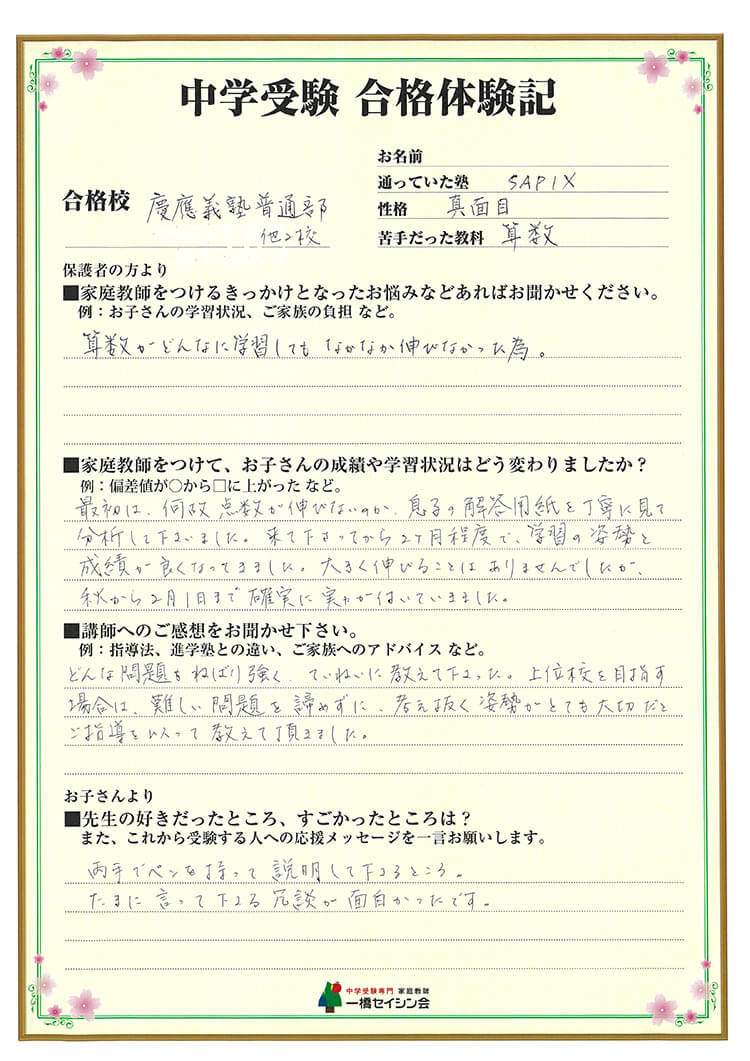 中学受験 合格体験記
お名前
通っていた塾 SAPIX
合格校 慶應義塾普通部
性格 真面目
他2校
苦手だった教科 算数
保護者の方より
■家庭教師をつけるきっかけとなったお悩みなどあればお聞かせください。
例：お子さんの学習状況、ご家族の負担 など。
算数がどんなに学習しても なかなか伸びなかった為。
■家庭教師をつけて、お子さんの成績や学習状況はどう変わりましたか？
例：偏差値が○から□に上がった など。
最初は、何故 点数が伸びないのか、息子の解答用紙を丁寧に見て
分析して下さいました。来て下さってから2ヶ月程度で、学習の姿勢と
成績が良くなってきました。大きく伸びることは ありませんでしたが、
秋から2月1日まで確実に実力が付いていきました。
■講師へのご感想をお聞かせ下さい。
例：指導法、進学塾との違い、ご家族へのアドバイス など。
どんな問題もねばり強く、ていねいに教えて下さった。上位校を目指す
場合は、難しい問題を諦めずに、考え抜く姿勢がとても大切だと
ご指導を以って教えて頂きました。
お子さんより
■先生の好きだったところ、すごかったところは？
また、これから受験する人への応援メッセージを一言お願いします。
両手でペンを持って説明して下さるところ。
たまに言って下さる冗談が面白かったです。
中学受験専門 家庭教師
一橋セイシン会